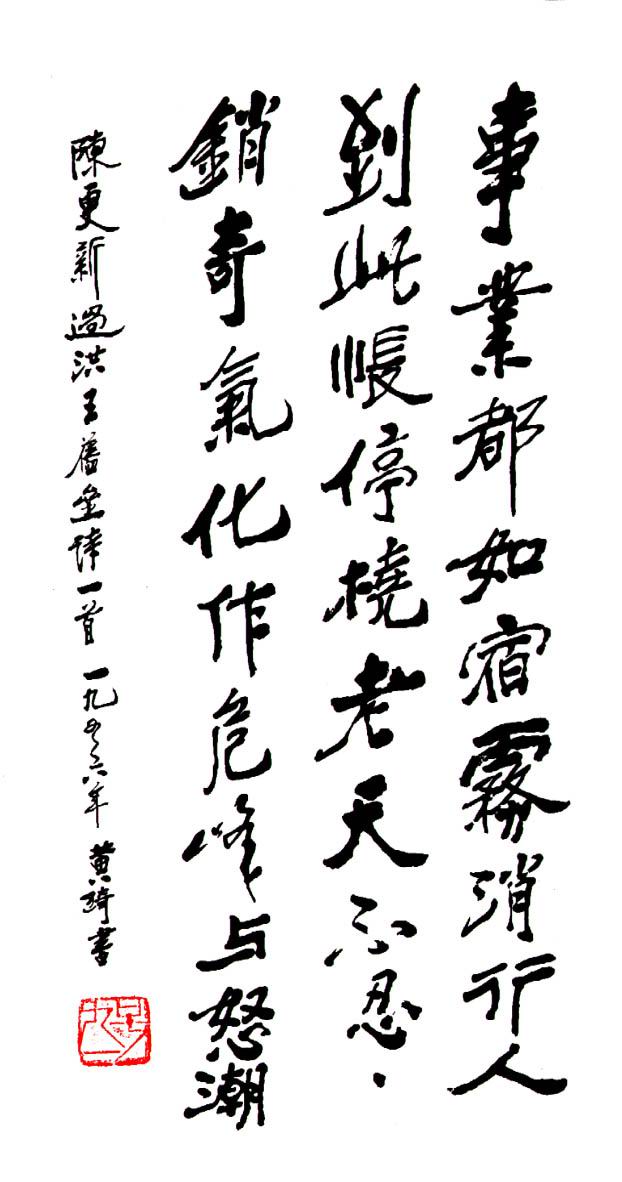 事業都如宿霧消行人
到此悵停橈老天不忍
銷奇氣化作危峰与怒潮
陳更新過洪王舊壘肆一首一九五六年黄綺書